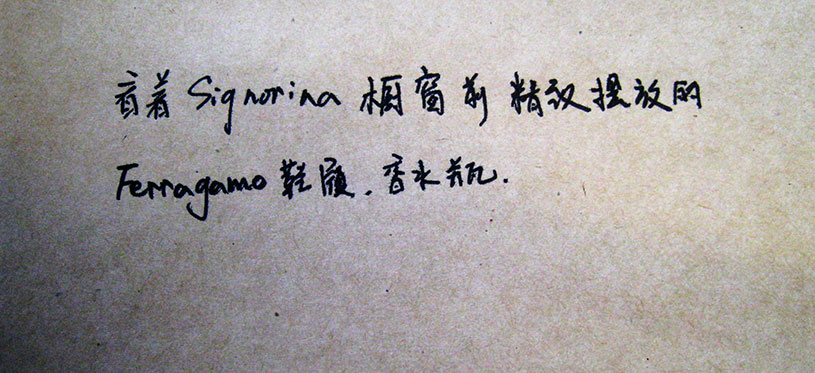 看着Signorina橱窗前精致摆放的
Ferragamo鞋履、香水瓶.